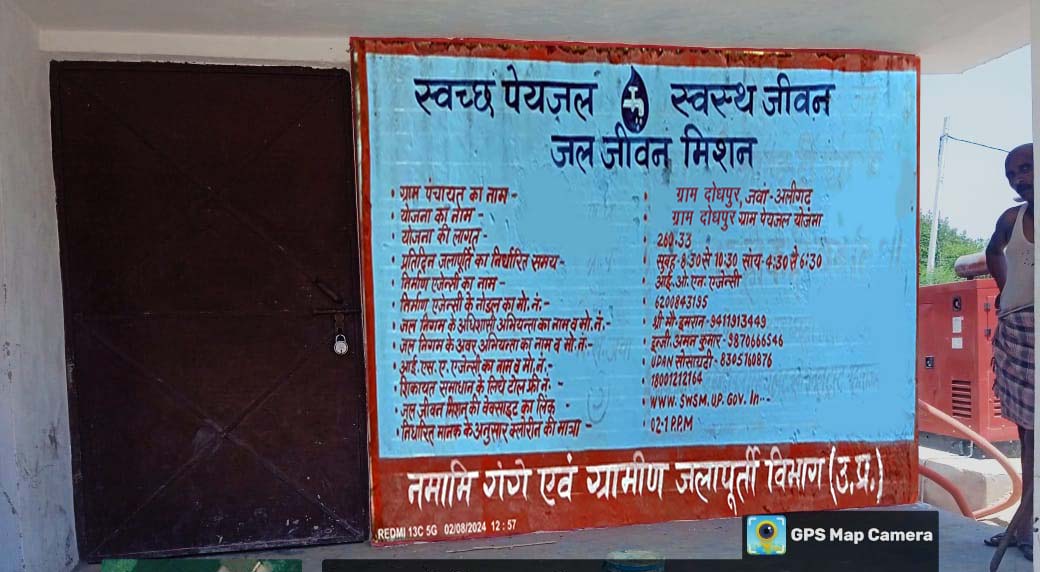 स्वच्छ पेयजल स्वस्थ जीवन
जल जीवन मिशन
• ग्राम पंचायत का नाम - • ग्राम दोधपुर, जवां-अलीगढ़
• योजना का नाम - • ग्राम दोधपुर ग्राम पेयजल योजना
• योजना की लागत - • 260.33
• प्रतिदिन जलापूर्ति का निर्धारित समय- • सुबह-8:30 से 10:30 सांय-4:30 से 6:30
• निर्माण एजेन्सी का नाम - • आई.ओ.एन. एजेन्सी
• निर्माण एजेन्सी के नोडल का मो. नं.- • 6200843195
• जल निगम के अधिशासी अभियन्ता का नाम व मो. नं.- • श्री मौ. इमरान-9411913449
• जल निगम के अवर अभियन्ता का नाम व मो. नं.- • इन्जी. अमन कुमार-9870666546
• आई.एस.ए. एजेन्सी का नाम व मो. नं.- • UDAN सोसायटी-8305160876
• शिकायत समाधान के लिये टोल फ्री नं.- • 18001212164
• जल जीवन मिशन की वेबसाइट का लिंक - • WWW.SWSM.UP.GOV.In--
• निर्धारित मानक के अनुसार क्लोरीन की मात्रा - • 02-1 P.P.M
नमामि गंगे एवं ग्रामीण जलापूर्ती विभाग (उ.प्र.)
REDMI 13C 5G 02/08/2024 12:57
GPS Map Camera